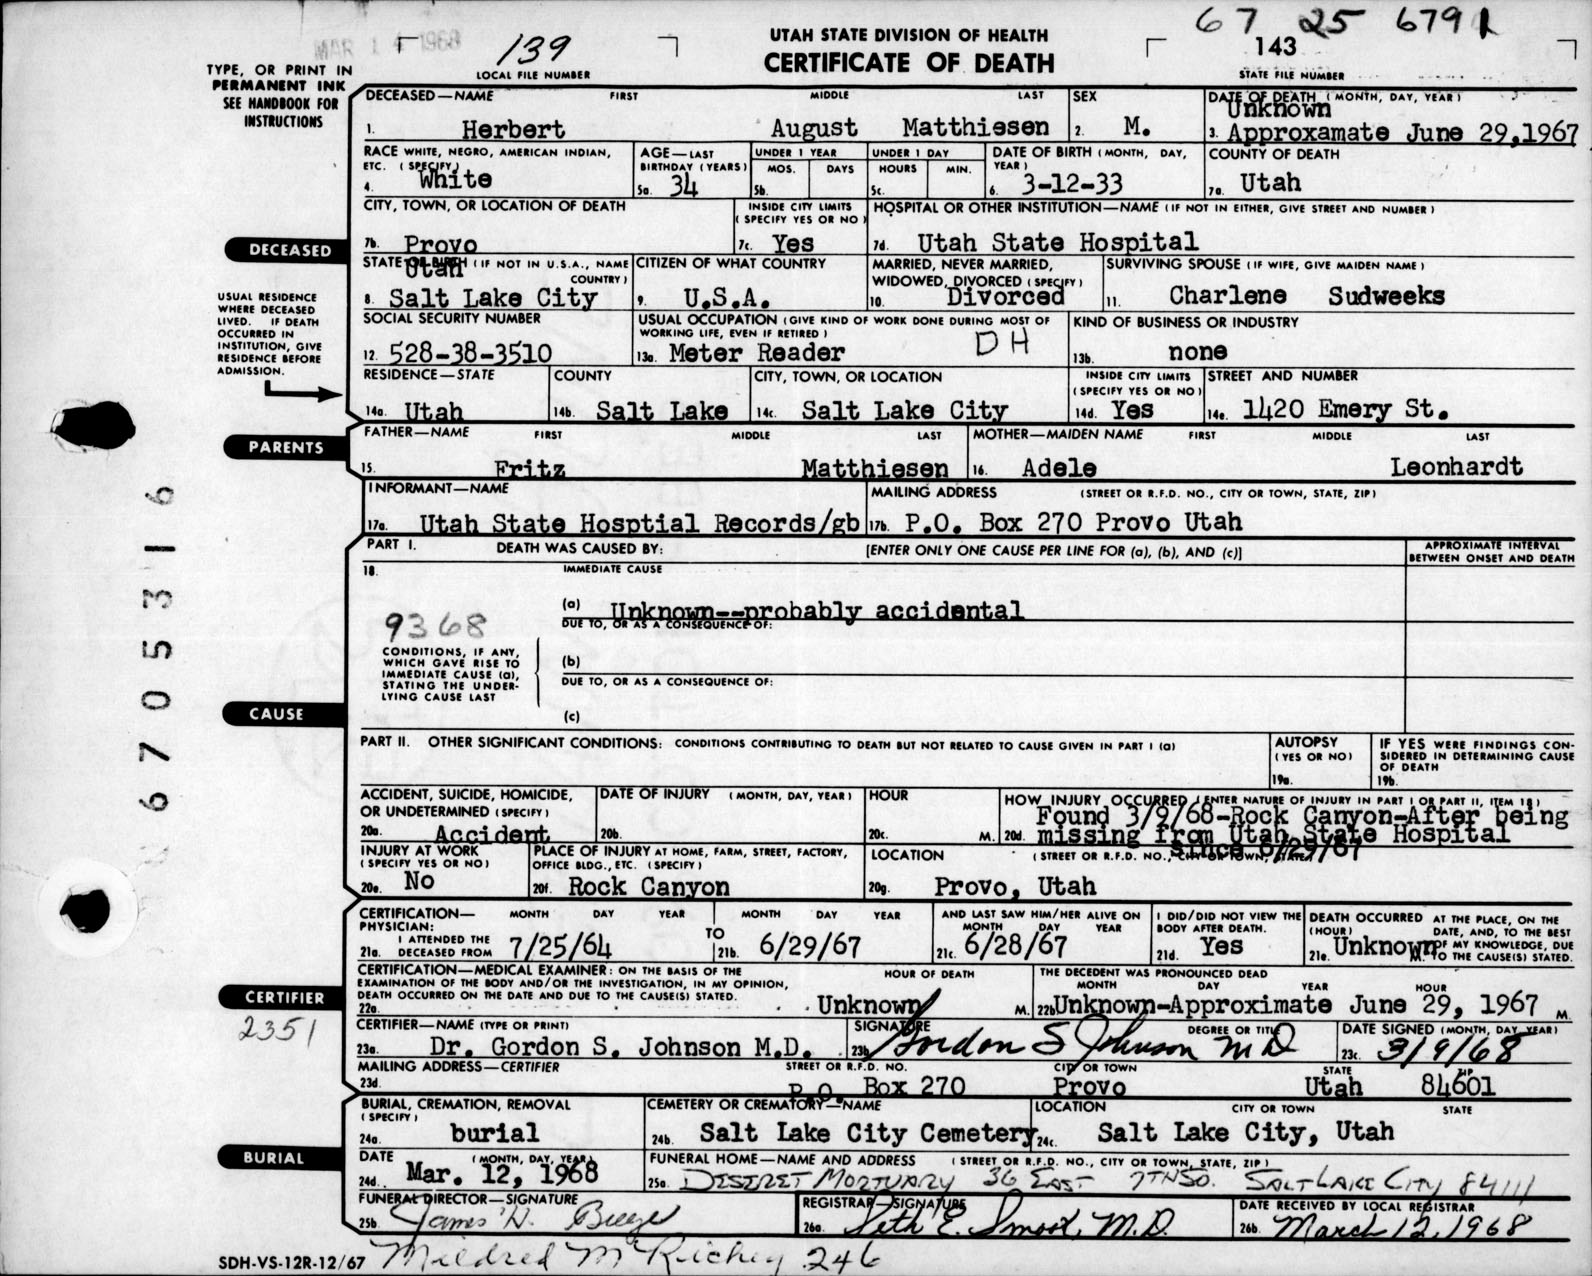 MAR 1 1968
139
LOCAL FILE NUMBER
UTAH STATE DIVISION OF HEALTH
CERTIFICATE OF DEATH
67 25 6791
143
STATE FILE NUMBER
TYPE, OR PRINT IN
PERMANENT INK
SEE HANDBOOK FOR
INSTRUCTIONS
DECEASED—NAME FIRST MIDDLE LAST
1. Herbert August Matthiesen
SEX
2. M.
DATE OF DEATH (MONTH, DAY, YEAR)
Unknown
3. Approxamate June 29,1967
RACE WHITE, NEGRO, AMERICAN INDIAN,
ETC. (SPECIFY)
4. White
AGE—LAST
BIRTHDAY (YEARS)
5a. 34
UNDER 1 YEAR
MOS. DAYS
5b.
UNDER 1 DAY
HOURS MIN.
5c.
DATE OF BIRTH (MONTH, DAY,
YEAR)
6. 3-12-33
COUNTY OF DEATH
7a. Utah
CITY, TOWN, OR LOCATION OF DEATH
7b. Provo
INSIDE CITY LIMITS
(SPECIFY YES OR NO)
7c. Yes
HOSPITAL OR OTHER INSTITUTION—NAME (IF NOT IN EITHER, GIVE STREET AND NUMBER)
7d. Utah State Hospital
DECEASED
STATE OF BIRTH (IF NOT IN U.S.A., NAME
COUNTRY)
Utah
8. Salt Lake City
CITIZEN OF WHAT COUNTRY
9. U.S.A.
MARRIED, NEVER MARRIED,
WIDOWED, DIVORCED (SPECIFY)
10. Divorced
SURVIVING SPOUSE (IF WIFE, GIVE MAIDEN NAME)
11. Charlene Sudweeks
USUAL RESIDENCE
WHERE DECEASED
LIVED. IF DEATH
OCCURRED IN
INSTITUTION, GIVE
RESIDENCE BEFORE
ADMISSION.
SOCIAL SECURITY NUMBER
12. 528-38-3510
USUAL OCCUPATION (GIVE KIND OF WORK DONE DURING MOST OF
WORKING LIFE, EVEN IF RETIRED)
13a. Meter Reader DH
KIND OF BUSINESS OR INDUSTRY
13b. none
RESIDENCE—STATE
14a. Utah
COUNTY
14b. Salt Lake
CITY, TOWN, OR LOCATION
14c. Salt Lake City
INSIDE CITY LIMITS
(SPECIFY YES OR NO)
14d. Yes
STREET AND NUMBER
14e. 1420 Emery St.
PARENTS
FATHER—NAME FIRST MIDDLE LAST
15. Fritz Matthiesen
MOTHER—MAIDEN NAME FIRST MIDDLE LAST
16. Adele Leonhardt
INFORMANT—NAME
17a. Utah State Hosptial Records/gb
MAILING ADDRESS (STREET OR R.F.D. NO., CITY OR TOWN, STATE, ZIP)
17b. P.O. Box 270 Provo Utah
6705316
PART I. DEATH WAS CAUSED BY: [ENTER ONLY ONE CAUSE PER LINE FOR (a), (b), AND (c)]
APPROXIMATE INTERVAL
BETWEEN ONSET AND DEATH
18. IMMEDIATE CAUSE
(a) Unknown--probably accidental
DUE TO, OR AS A CONSEQUENCE OF:
9368
CONDITIONS, IF ANY,
WHICH GAVE RISE TO
IMMEDIATE CAUSE (a),
STATING THE UNDER-
LYING CAUSE LAST
(b)
DUE TO, OR AS A CONSEQUENCE OF:
(c)
CAUSE
PART II. OTHER SIGNIFICANT CONDITIONS: CONDITIONS CONTRIBUTING TO DEATH BUT NOT RELATED TO CAUSE GIVEN IN PART I (a)
AUTOPSY
(YES OR NO)
19a.
IF YES WERE FINDINGS CON-
SIDERED IN DETERMINING CAUSE
OF DEATH
19b.
ACCIDENT, SUICIDE, HOMICIDE,
OR UNDETERMINED (SPECIFY)
20a. Accident
DATE OF INJURY (MONTH, DAY, YEAR)
20b.
HOUR
20c. M.
HOW INJURY OCCURRED (ENTER NATURE OF INJURY IN PART I OR PART II, ITEM 18)
Found 3/9/68-Rock Canyon-After being
20d. missing from Utah State Hospital
since 6/29/67
INJURY AT WORK
(SPECIFY YES OR NO)
20e. No
PLACE OF INJURY AT HOME, FARM, STREET, FACTORY,
OFFICE BLDG., ETC. (SPECIFY)
20f. Rock Canyon
LOCATION (STREET OR R.F.D. NO., CITY OR TOWN, STATE)
20g. Provo, Utah
CERTIFICATION—
PHYSICIAN:
MONTH DAY YEAR
I ATTENDED THE
21a. DECEASED FROM 7/25/64
TO
MONTH DAY YEAR
21b. 6/29/67
AND LAST SAW HIM/HER ALIVE ON
MONTH DAY YEAR
21c. 6/28/67
I DID/DID NOT VIEW THE
BODY AFTER DEATH.
21d. Yes
DEATH OCCURRED AT THE PLACE, ON THE
(HOUR) DATE, AND, TO THE BEST
OF MY KNOWLEDGE, DUE
TO THE CAUSE(S) STATED.
21e. Unknown M.
CERTIFIER
2351
CERTIFICATION—MEDICAL EXAMINER: ON THE BASIS OF THE
EXAMINATION OF THE BODY AND/OR THE INVESTIGATION, IN MY OPINION,
DEATH OCCURRED ON THE DATE AND DUE TO THE CAUSE(S) STATED.
22a.
HOUR OF DEATH
Unknown M.
THE DECEDENT WAS PRONOUNCED DEAD
MONTH DAY YEAR HOUR
22b. Unknown-Approximate June 29, 1967 M.
CERTIFIER—NAME (TYPE OR PRINT)
23a. Dr. Gordon S. Johnson M.D.
SIGNATURE DEGREE OR TITLE
23b. Gordon S Johnson MD
DATE SIGNED (MONTH, DAY, YEAR)
23c. 3/9/68
MAILING ADDRESS—CERTIFIER STREET OR R.F.D. NO. CITY OR TOWN STATE ZIP
23d. P.O. Box 270 Provo Utah 84601
BURIAL
BURIAL, CREMATION, REMOVAL
(SPECIFY)
24a. burial
CEMETERY OR CREMATORY—NAME
24b. Salt Lake City Cemetery
LOCATION CITY OR TOWN STATE
24c. Salt Lake City, Utah
DATE (MONTH, DAY, YEAR)
24d. Mar. 12, 1968
FUNERAL HOME—NAME AND ADDRESS (STREET OR R.F.D. NO., CITY OR TOWN, STATE, ZIP)
25a. DESERET MORTUARY 36 EAST 7TH SO. SALT LAKE CITY 84111
FUNERAL DIRECTOR—SIGNATURE
25b. James H.
REGISTRAR—SIGNATURE
26a. Seth E. Smoot, M.D.
DATE RECEIVED BY LOCAL REGISTRAR
26b. March 12, 1968
SDH-VS-12R-12/67 Mildred McRichey 246